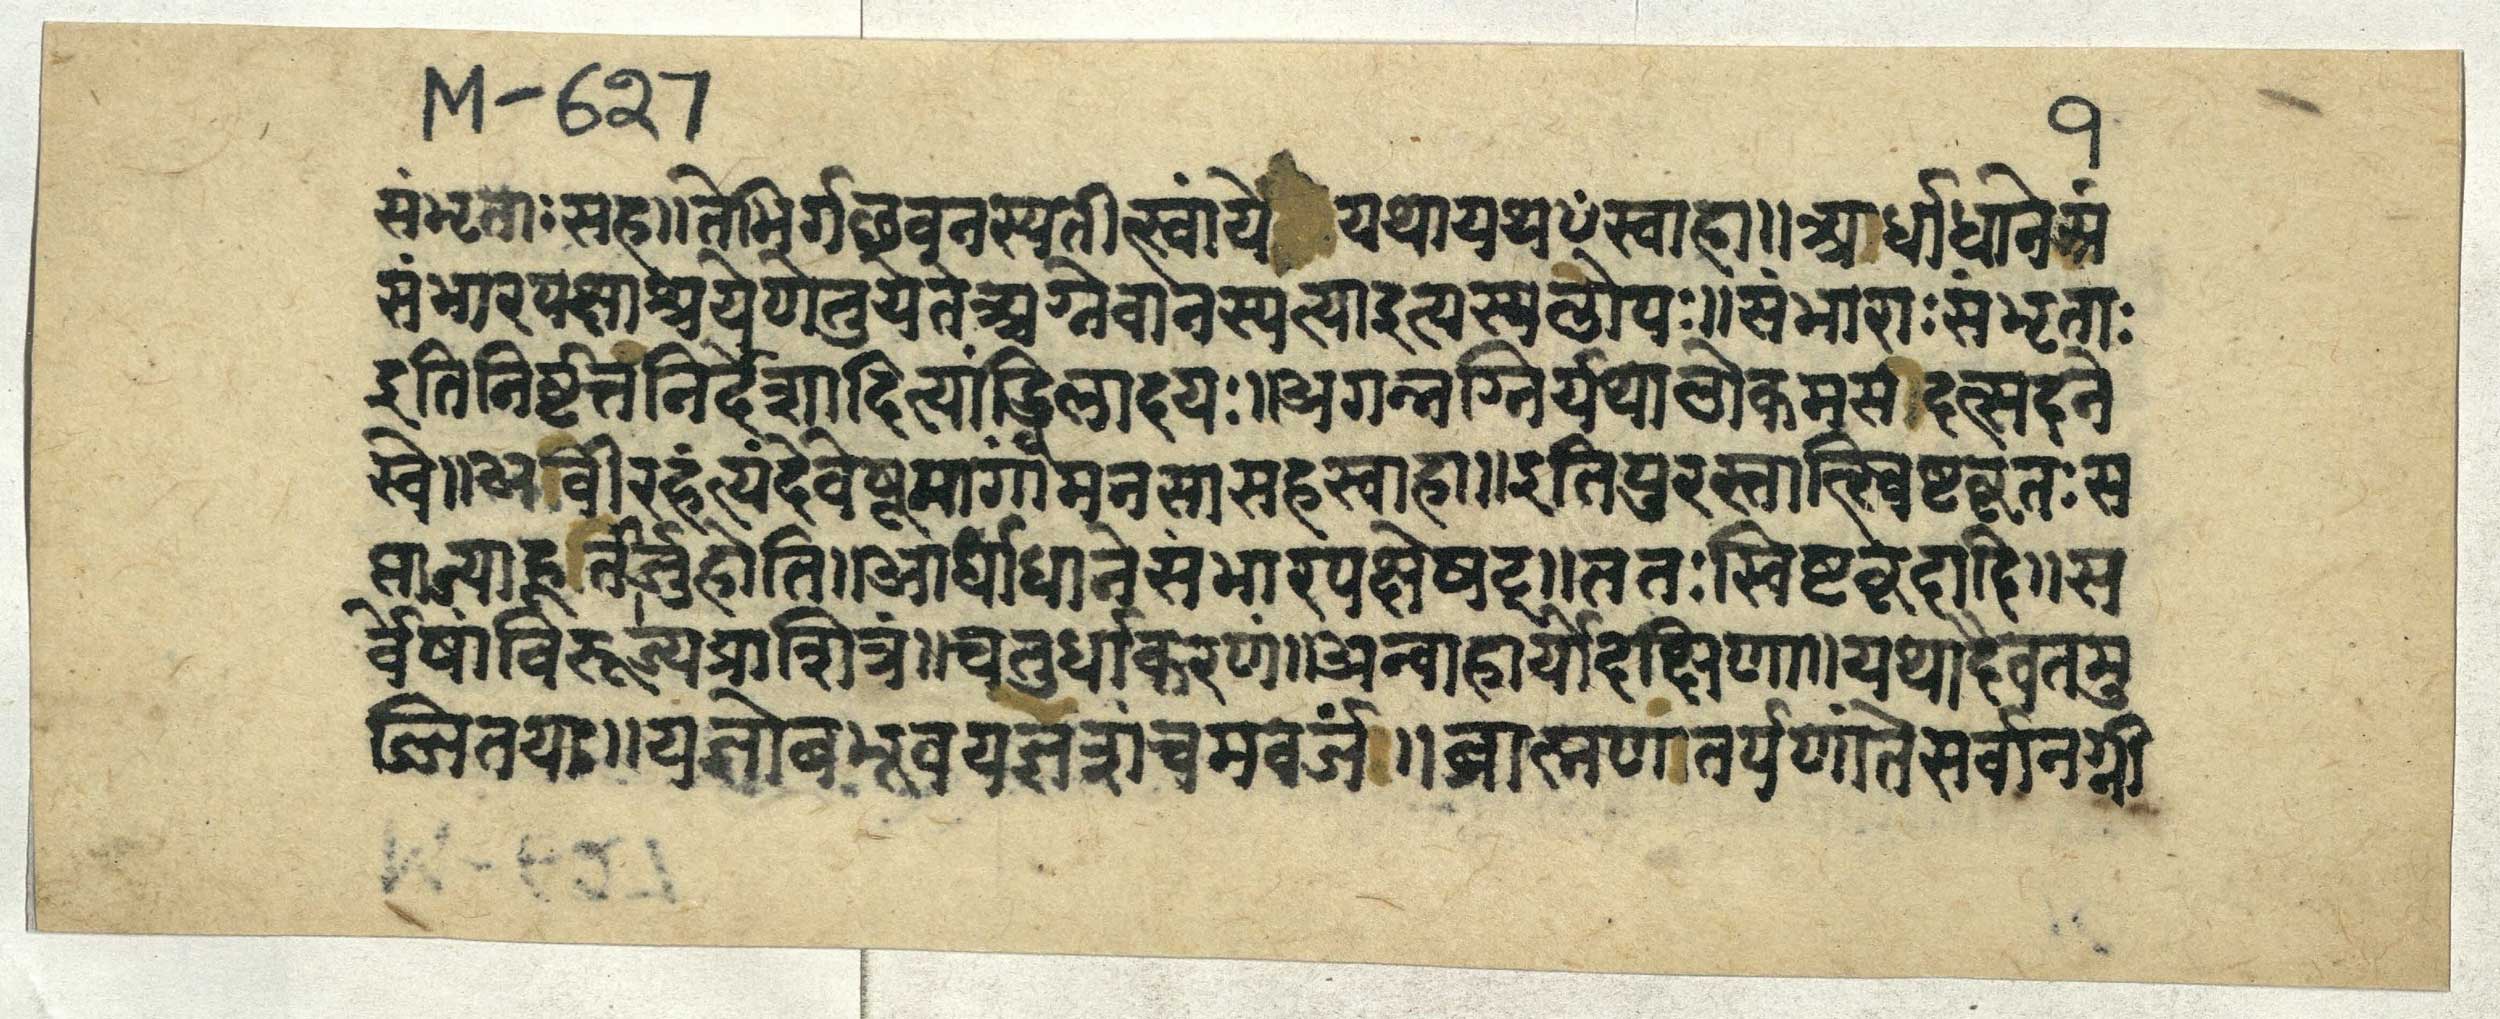 M-627
१
संभृताः सह॥ तेभिर्गछ वनस्पतीत्स्वां ये यथायथꣳ स्वाहा॥ आर्धाधाने सं
संभारपक्षाश्रयेणे तु ये ते अग्ने वानस्पत्या इत्यस्य लोपः॥ संभाराः संभृताः
इति निर्दिशादित्यां द्रिलादयः॥ अगन्नग्निर्यथालोकमसदत्सदने
स्वे॥ अवीरहत्यं देवेषूमागां मनसा सह स्वाहा॥ इति पुरस्तात्स्विष्टकृतः स
प्तान्याहुतीर्जुहोति॥ आर्धाधाने संभारपक्षे षट्॥ ततः स्विष्टकृदादि॥ स
र्वेषां विरूज्य प्राशित्रं॥ चतुर्धाकरणं॥ अन्वाहार्यो दक्षिणा॥ यथादैवतमु
ज्जितयः॥ यज्ञो बभूव यज्ञ शं च मवर्जं॥ ब्राह्मणतर्पणांते सर्वानग्नी
M-627